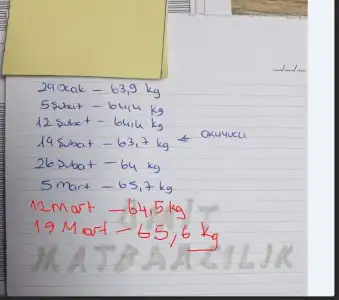 29 Ocak - 63,9 kg
5 Şubat - 64,4 kg
12 Şubat - 64,4 kg
19 Şubat - 63,7 kg ←
26 Şubat - 64 kg
5 Mart - 65,7 kg
12 Mart - 64,5 kg
19 Mart - 65,6 kg
MATBAACILIK